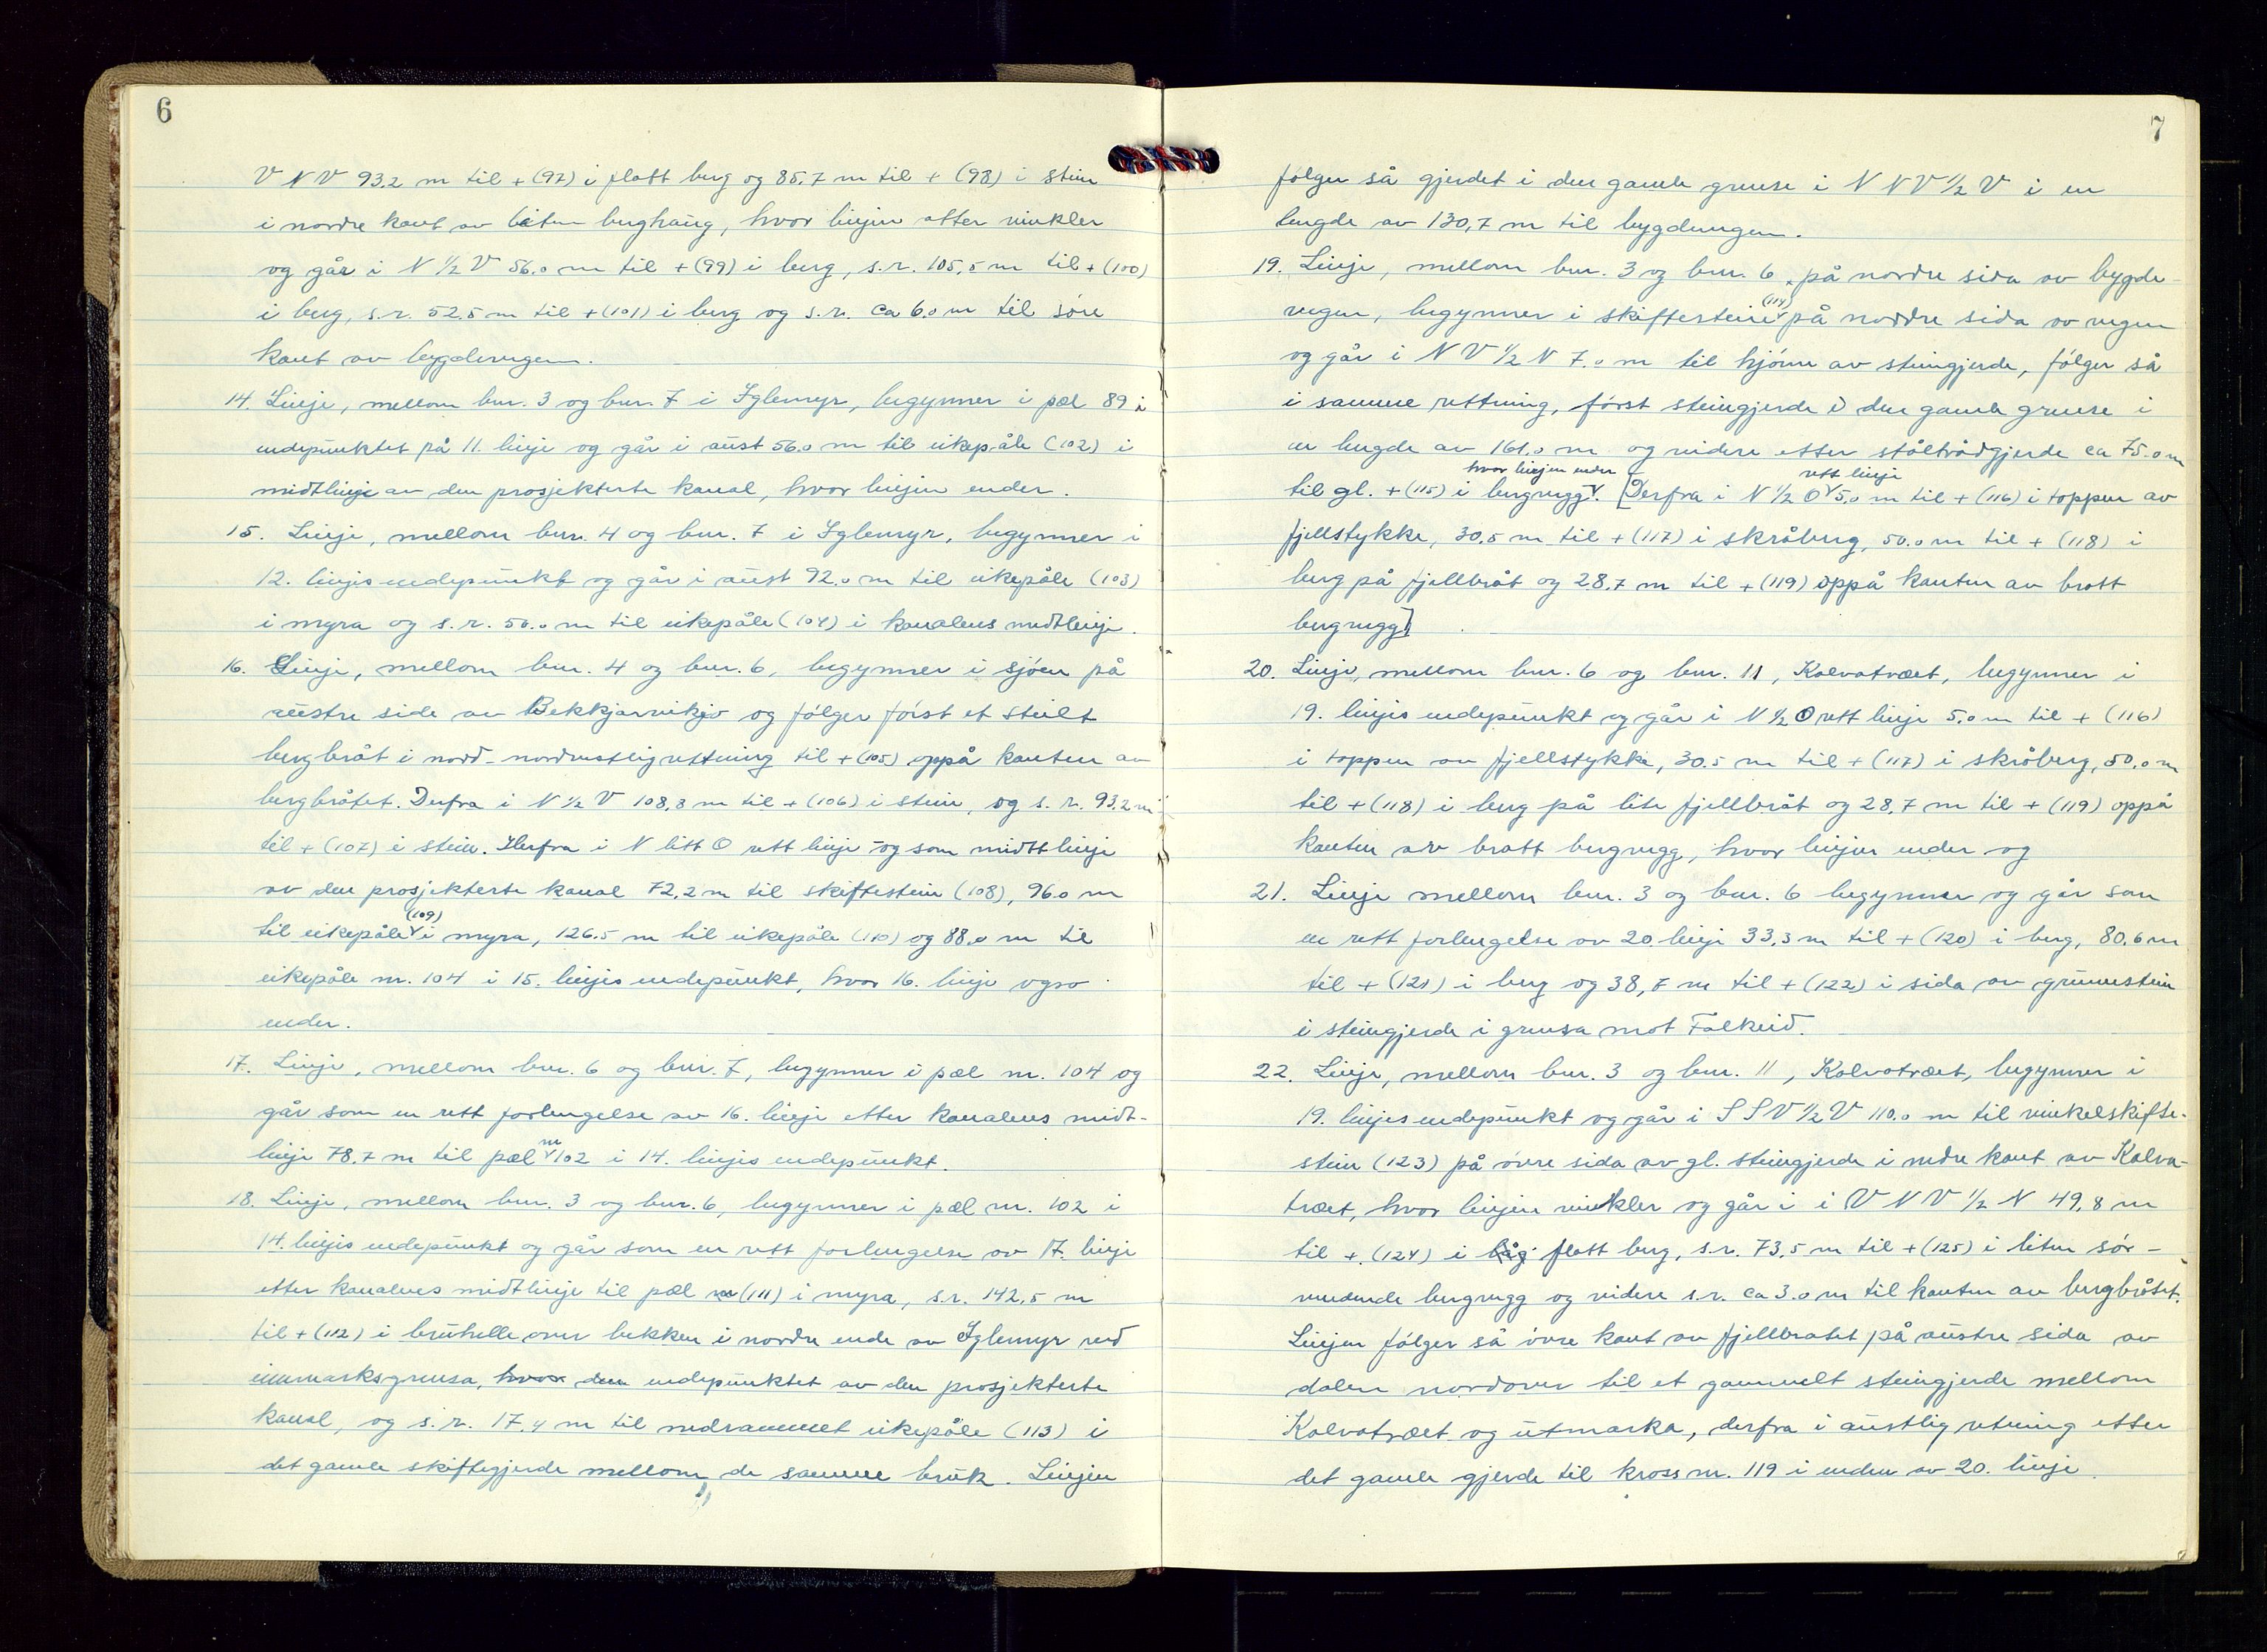 6
V N V 93,2 m til + (97) i flatt berg og 85,7 m til + (98) i stein
i nordre kant av liten berghaug, hvor linjen atter vinkler
og går i N 1/2 V 56,0 m til + (99) i berg, s.r. 105,5 m til + (100)
i berg, s.r. 52,5 m til + (101) i berg og s.r. ca 6,0 m til søre
kant av bygdevegen.
14. Linje, mellom bnr. 3 og bnr. 7 i Iglemyr, begynner i pæl 89 i
endepunktet på 11. linje og går i aust 56,0 m til eikepåle (102) i
midtlinje av den prosjekterte kanal, hvor linjen ender.
15. Linje, mellom bnr. 4 og bnr. 7 i Iglemyr, begynner i
12. linjes endepunkt og går i aust 92,0 m til eikepåle (103)
i myra og s.r. 50,0 m til eikepåle (104) i kanalens midtlinje.
16. Linje, mellom bnr. 4 og bnr. 6, begynner i sjøen på
austre side av Bekkjarvikjo og følger først et steilt
bergbråt i nord-nordvestlig rettning til + (105) oppå kanten av
bergbråtet. Derfra i N 1/2 V 108,8 m til + (106) i stein, og s.r. 93,2 m
til + (107) i stein. Herfra i N litt O rett linje og som midtlinje
av den prosjekterte kanal 72,2 m til skiftestein (108), 96,0 m
til eikepåle (109) i myra, 126,5 m til eikepåle (110) og 88,0 m til
eikepåle nr. 104 i 15. linjes endepunkt, hvor 16. linje ogso
ender.
17. Linje, mellom bnr. 6 og bnr. 7, begynner i pæl nr. 104 og
går som en rett forlengelse av 16. linje etter kanalens midt-
linje 78,7 m til pæl nr 102 i 14. linjes endepunkt.
18. Linje, mellom bnr. 3 og bnr. 6, begynner i pæl nr. 102 i
14. linjes endepunkt og går som en rett forlengelse av 17. linje
etter kanalens midtlinje til pæl (111) i myra, s.r. 142,5 m
til + (112) i bruhelle over bekken i nordre ende av Iglemyr ved
innmarksgrensa, hvor den endepunktet av den prosjekterte
kanal, og s.r. 17,4 m til nedrammet eikepåle (113) i
det gamle skiftegjerde mellom de samme bruk. Linjen
7
følger så gjerdet i den gamle grense i N N V 1/2 V i en
lengde av 130,7 m til bygdevegen.
19. Linje, mellom bnr. 3 og bnr. 6, på nordre sida av bygde-
vegen, begynner i skiftestein (114) på nordre sida av vegen
og går i N V 1/2 N 7,0 m til hjørne av steingjerde, følger så
i samme rettning, først steingjerde i den gamle grense i
en lengde av 161,0 m og videre etter ståltrådgjerde ca 75,0 m
til gl. + (115) i bergrygg hvor linjen ender. [Derfra i N 1/2 O rett linje 5,0 m til + (116) i toppen av
fjellstykke, 30,5 m til + (117) i skråberg, 50,0 m til + (118) i
berg på fjellbråt og 28,7 m til + (119) oppå kanten av bratt
bergrygg]
20. Linje, mellom bnr. 6 og bnr. 11, Kalvatræet, begynner i
19. linjes endepunkt og går i N 1/2 O rett linje 5,0 m til + (116)
i toppen av fjellstykke, 30,5 m til + (117) i skråberg, 50,0 m
til + (118) i berg på lite fjellbråt og 28,7 m til + (119) oppå
kanten av bratt bergrygg, hvor linjen ender og
21. Linje mellom bnr. 3 og bnr. 6 begynner og går som
en rett forlengelse av 20. linje 33,3 m til + (120) i berg, 80,6 m
til + (121) i berg og 38,7 m til + (122) i sida av grunnstein
i steingjerde i grensa mot Falkeid.
22. Linje, mellom bnr. 3 og bnr. 11, Kalvatræet, begynner i
19. linjes endepunkt og går i S S V 1/2 V 110,0 m til vinkelskifte-
stein (123) på øvre sida av gl. steingjerde i nedre kant av Kalva-
træet, hvor linjen vinkler og går i i V N V 1/2 N 49,8 m
til + (124) i låg flatt berg, s.r. 73,5 m til + (125) i liten sør-
vendende bergrygg og videre s.r. ca 3,0 m til kanten av bergbråtet.
Linjen følger så øvre kant av fjellbratet på austre sida av
dalen nordover til et gammelt steingjerde mellom
Kalvatræet og utmarka, derfra i austlig retning etter
det gamle gjerde til kross nr. 119 i enden av 20. linje.